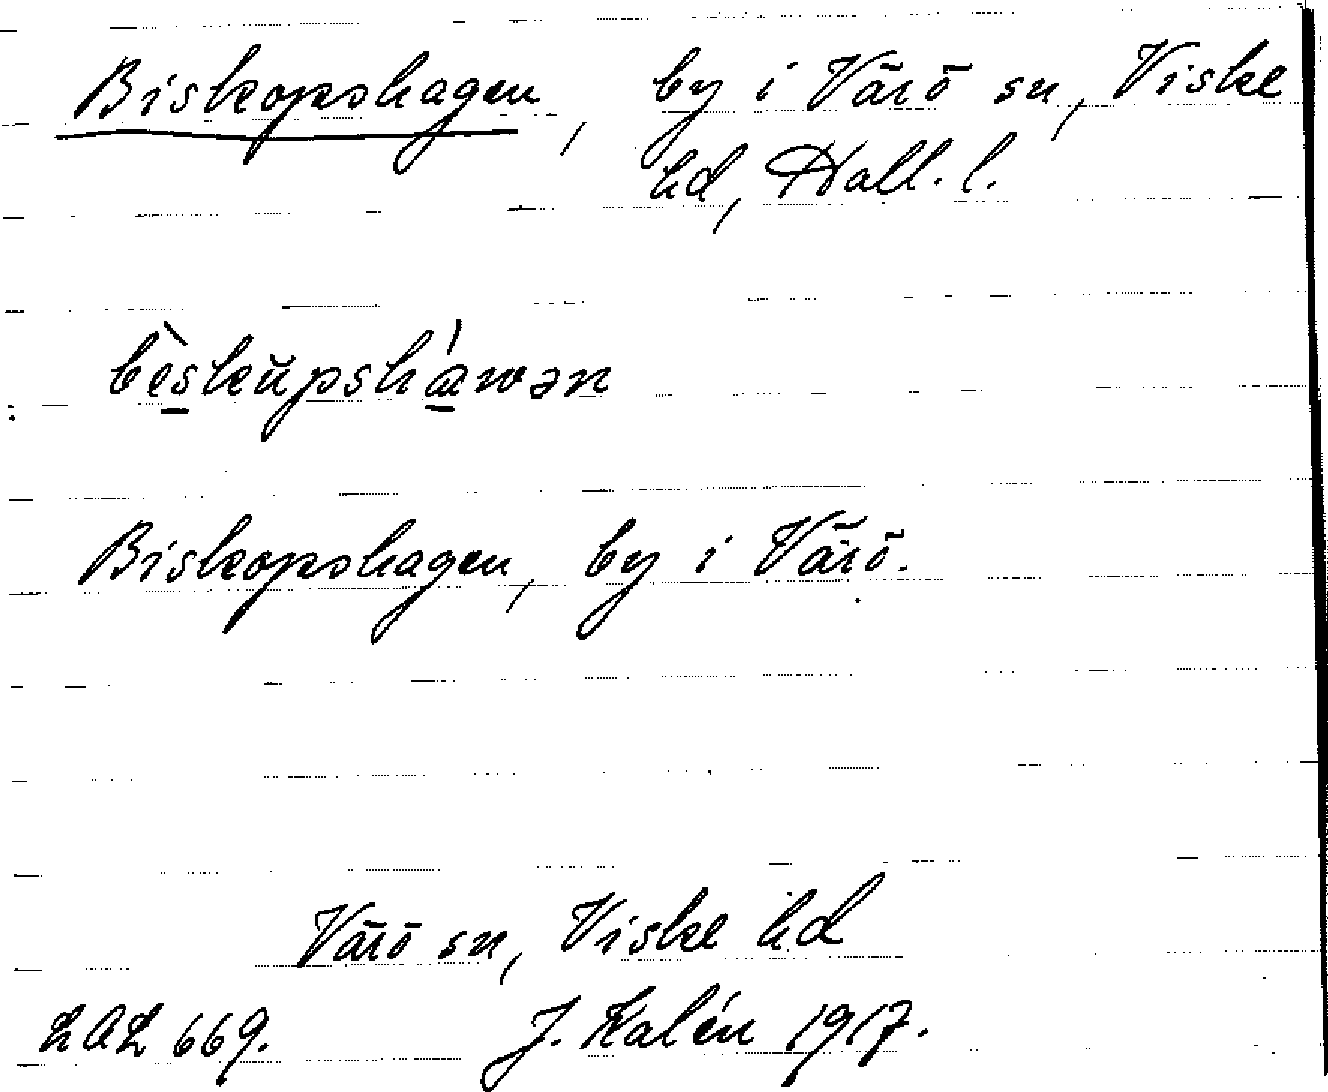 Biskopshagen, by i Värö sn, Viske
hd, Hall. l.
bèskŭpshá̱wən
Biskopshagen, by i Värö.
Värö sn, Viske hd
LAL 669. J. Kalén 1917.